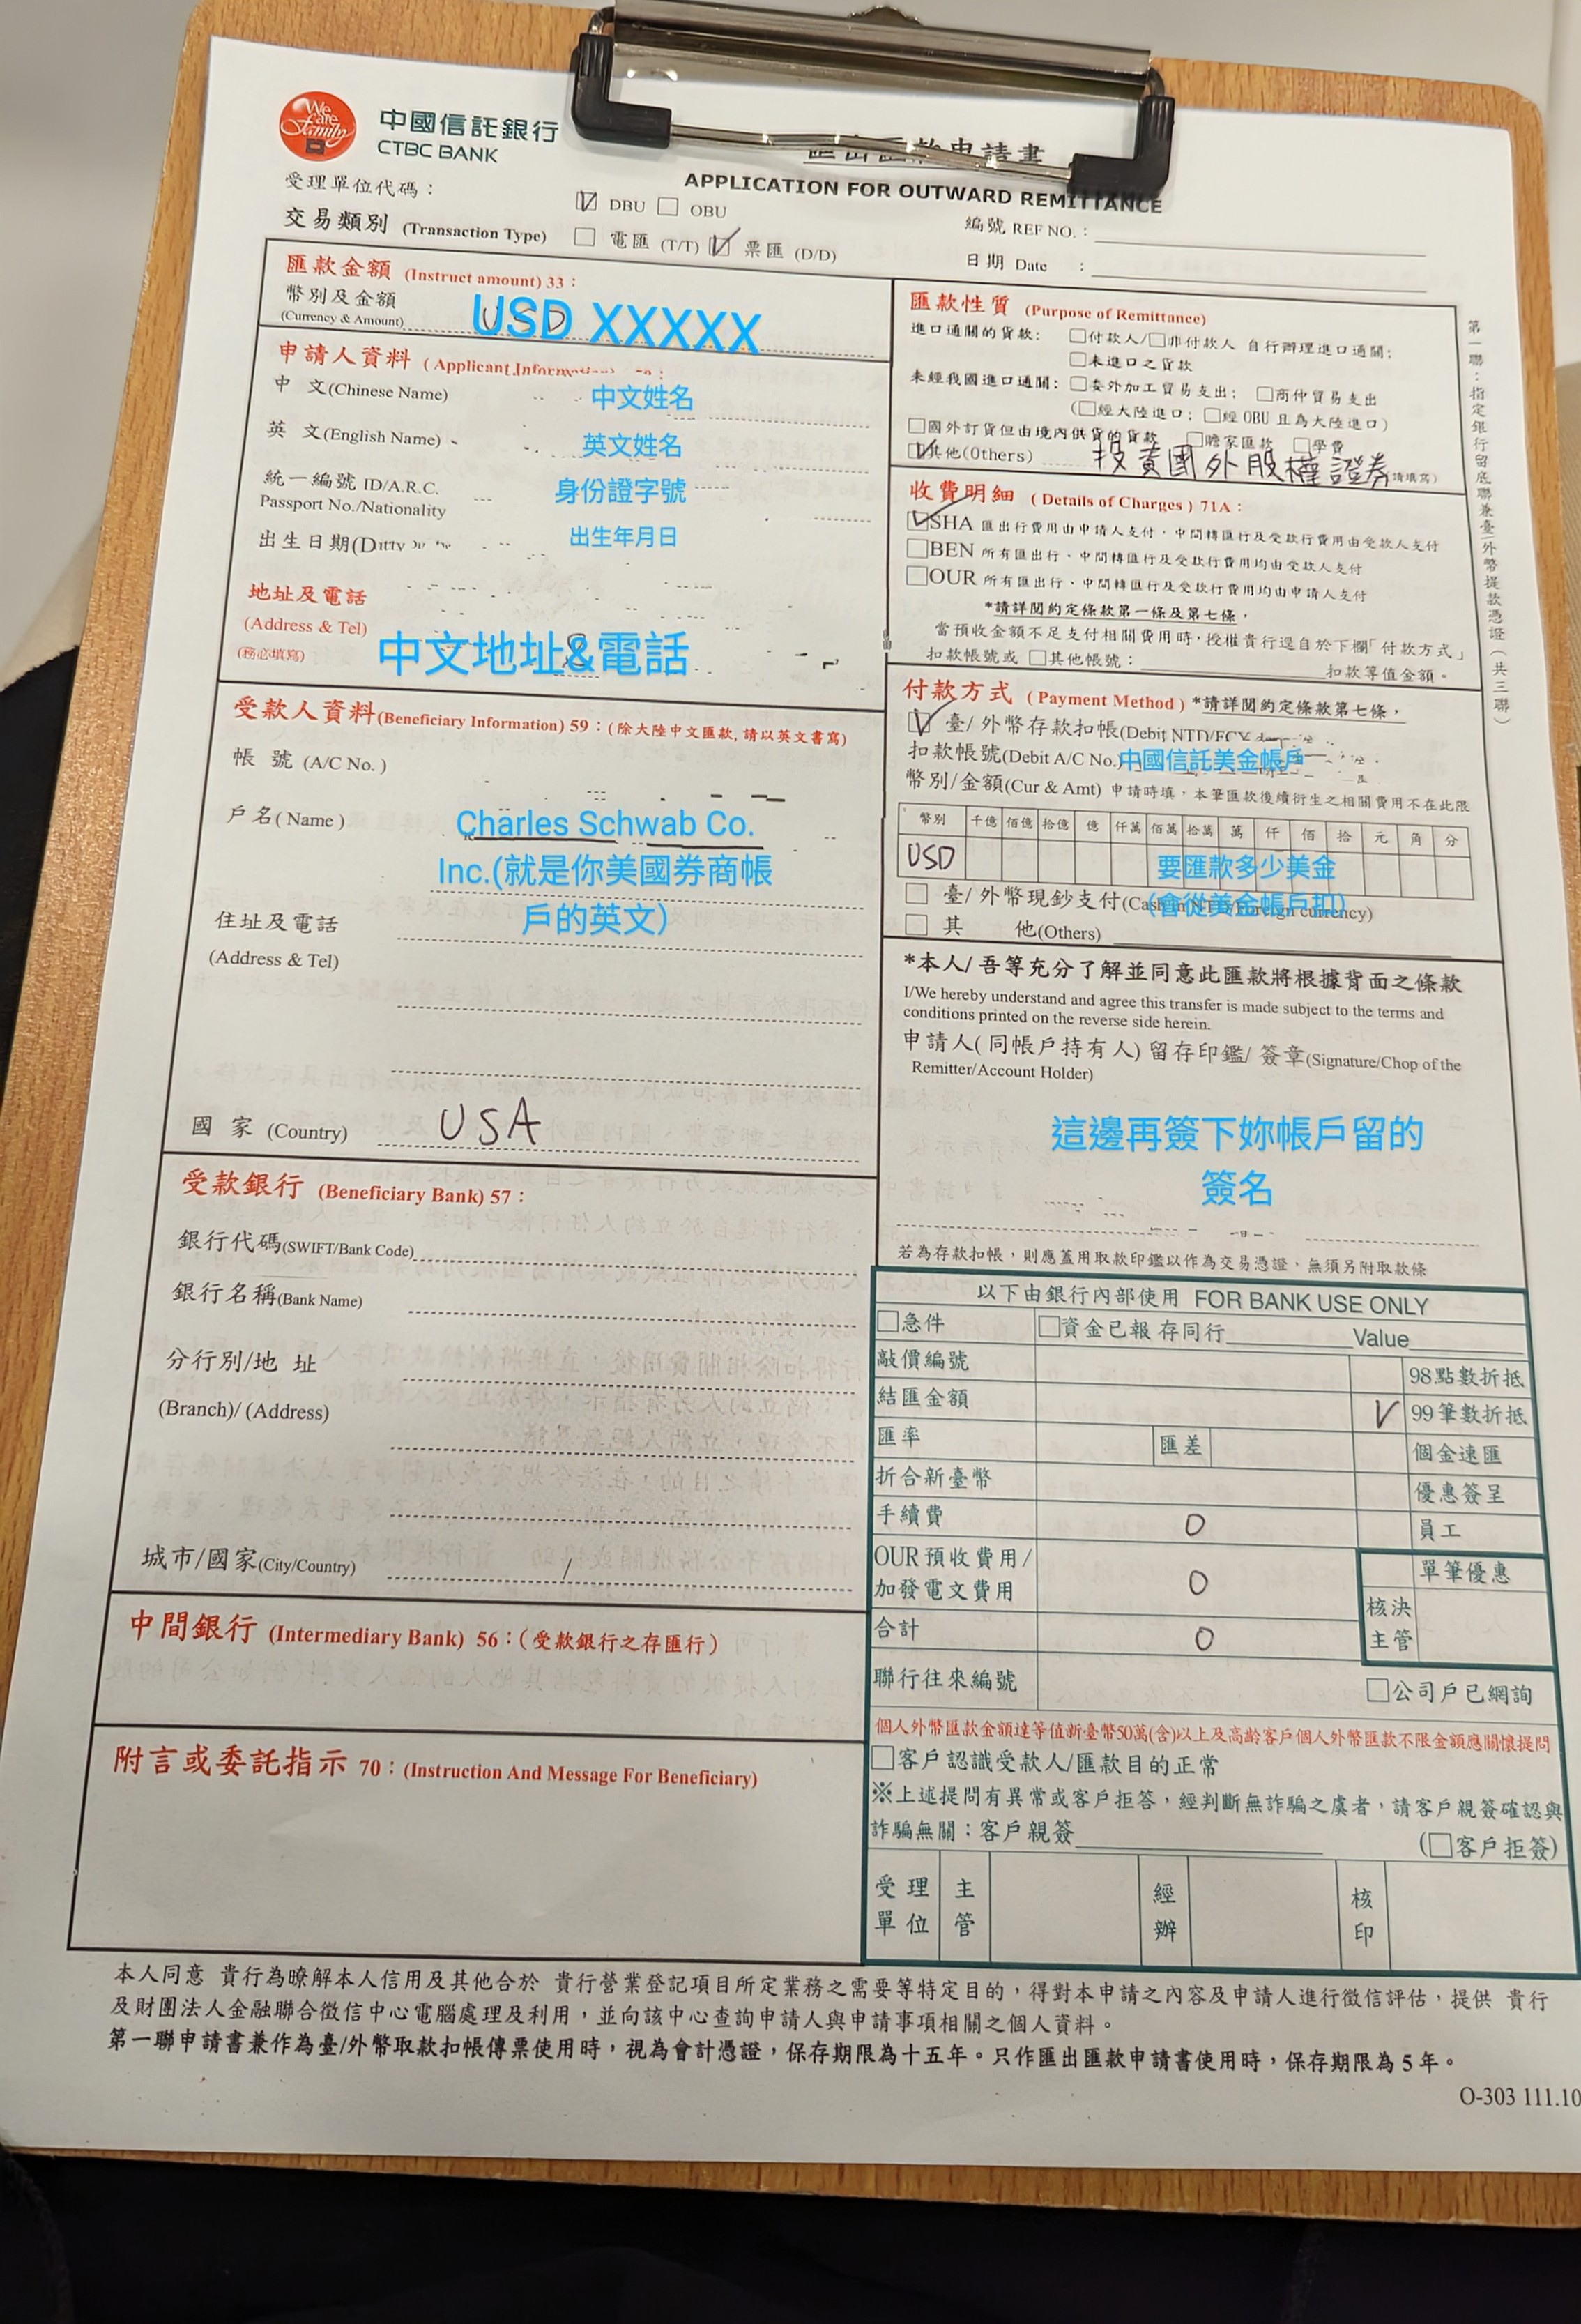 We are Family
中國信託銀行
CTBC BANK
APPLICATION FOR OUTWARD REMITTANCE
受理單位代碼：
DBU OBU
編號 REF NO.：
交易類別 (Transaction Type) 電匯 (T/T) 票匯 (D/D)
日期 Date ：
匯款金額 (Instruct amount) 33：
幣別及金額
(Currency & Amount)
USD XXXXX
申請人資料
中 文(Chinese Name) 中文姓名
英 文(English Name) 英文姓名
統一編號 ID/A.R.C. 身份證字號
Passport No./Nationality
出生日期 出生年月日
地址及電話
(Address & Tel)
(務必填寫)
中文地址&電話
受款人資料(Beneficiary Information) 59：(除大陸中文匯款,請以英文書寫)
帳 號 (A/C No. )
戶 名( Name )
Charles Schwab Co.
Inc.(就是你美國券商帳
戶的英文)
住址及電話
(Address & Tel)
國 家 (Country) USA
受款銀行 (Beneficiary Bank) 57：
銀行代碼(SWIFT/Bank Code)
銀行名稱(Bank Name)
分行別/地 址
(Branch)/ (Address)
城市/國家(City/Country) /
中間銀行 (Intermediary Bank) 56：(受款銀行之存匯行)
附言或委託指示 70：(Instruction And Message For Beneficiary)
匯款性質 (Purpose of Remittance)
進口通關的貨款: 付款人/ 非付款人 自行辦理進口通關;
未進口之貨款
未經我國進口通關: 委外加工貿易支出; 商仲貿易支出
( 經大陸進口; 經 OBU 且為大陸進口)
國外訂貨但由境內供貨的貨款 贍家匯款 學費
其他(Others) 投資國外股權證券 請填寫)
收費明細 ( Details of Charges ) 71A：
SHA 匯出行費用由申請人支付，中間轉匯行及受款行費用由受款人支付
BEN 所有匯出行、中間轉匯行及受款行費用均由受款人支付
OUR 所有匯出行、中間轉匯行及受款行費用均由申請人支付
*請詳閱約定條款第一條及第七條，
當預收金額不足支付相關費用時,授權貴行逕自於下欄「付款方式」
扣款帳號或 其他帳號： 扣款等值金額。
付款方式 ( Payment Method ) *請詳閱約定條款第七條，
臺/ 外幣存款扣帳
扣款帳號(Debit A/C No.) 中國信託美金帳戶
幣別/金額(Cur & Amt) 申請時填，本筆匯款後續衍生之相關費用不在此限
幣別 千億 佰億 拾億 億 仟萬 佰萬 拾萬 萬 仟 佰 拾 元 角 分
USD 要匯款多少美金
(會從美金帳戶扣)
臺/ 外幣現鈔支付(Cash in NTD/Foreign currency)
其 他(Others)
*本人/ 吾等充分了解並同意此匯款將根據背面之條款
I/We hereby understand and agree this transfer is made subject to the terms and
conditions printed on the reverse side herein.
申請人( 同帳戶持有人) 留存印鑑/ 簽章(Signature/Chop of the
Remitter/Account Holder)
這邊再簽下妳帳戶留的
簽名
若為存款扣帳，則應蓋用取款印鑑以作為交易憑證，無須另附取款條
以下由銀行內部使用 FOR BANK USE ONLY
急件 資金已報 存同行 Value
敲價編號 98點數折抵
結匯金額 99筆數折抵
匯率 匯差 個金速匯
折合新臺幣 優惠簽呈
手續費 0 員工
OUR 預收費用/
加發電文費用 0 單筆優惠
合計 0 核決
主管
聯行往來編號 公司戶已網詢
個人外幣匯款金額達等值新臺幣50萬(含)以上及高齡客戶個人外幣匯款不限金額應關懷提問
客戶認識受款人/匯款目的正常
※上述提問有異常或客戶拒答，經判斷無詐騙之虞者，請客戶親簽確認與
詐騙無關：客戶親簽 ( 客戶拒簽)
受理 主 經 核
單位 管 辦 印
第一聯：指定銀行留底聯兼臺/外幣提款憑證(共三聯)
本人同意 貴行為瞭解本人信用及其他合於 貴行營業登記項目所定業務之需要等特定目的，得對本申請之內容及申請人進行徵信評估，提供 貴行
及財團法人金融聯合徵信中心電腦處理及利用，並向該中心查詢申請人與申請事項相關之個人資料。
第一聯申請書兼作為臺/外幣取款扣帳傳票使用時，視為會計憑證，保存期限為十五年。只作匯出匯款申請書使用時，保存期限為 5 年。
O-303 111.10